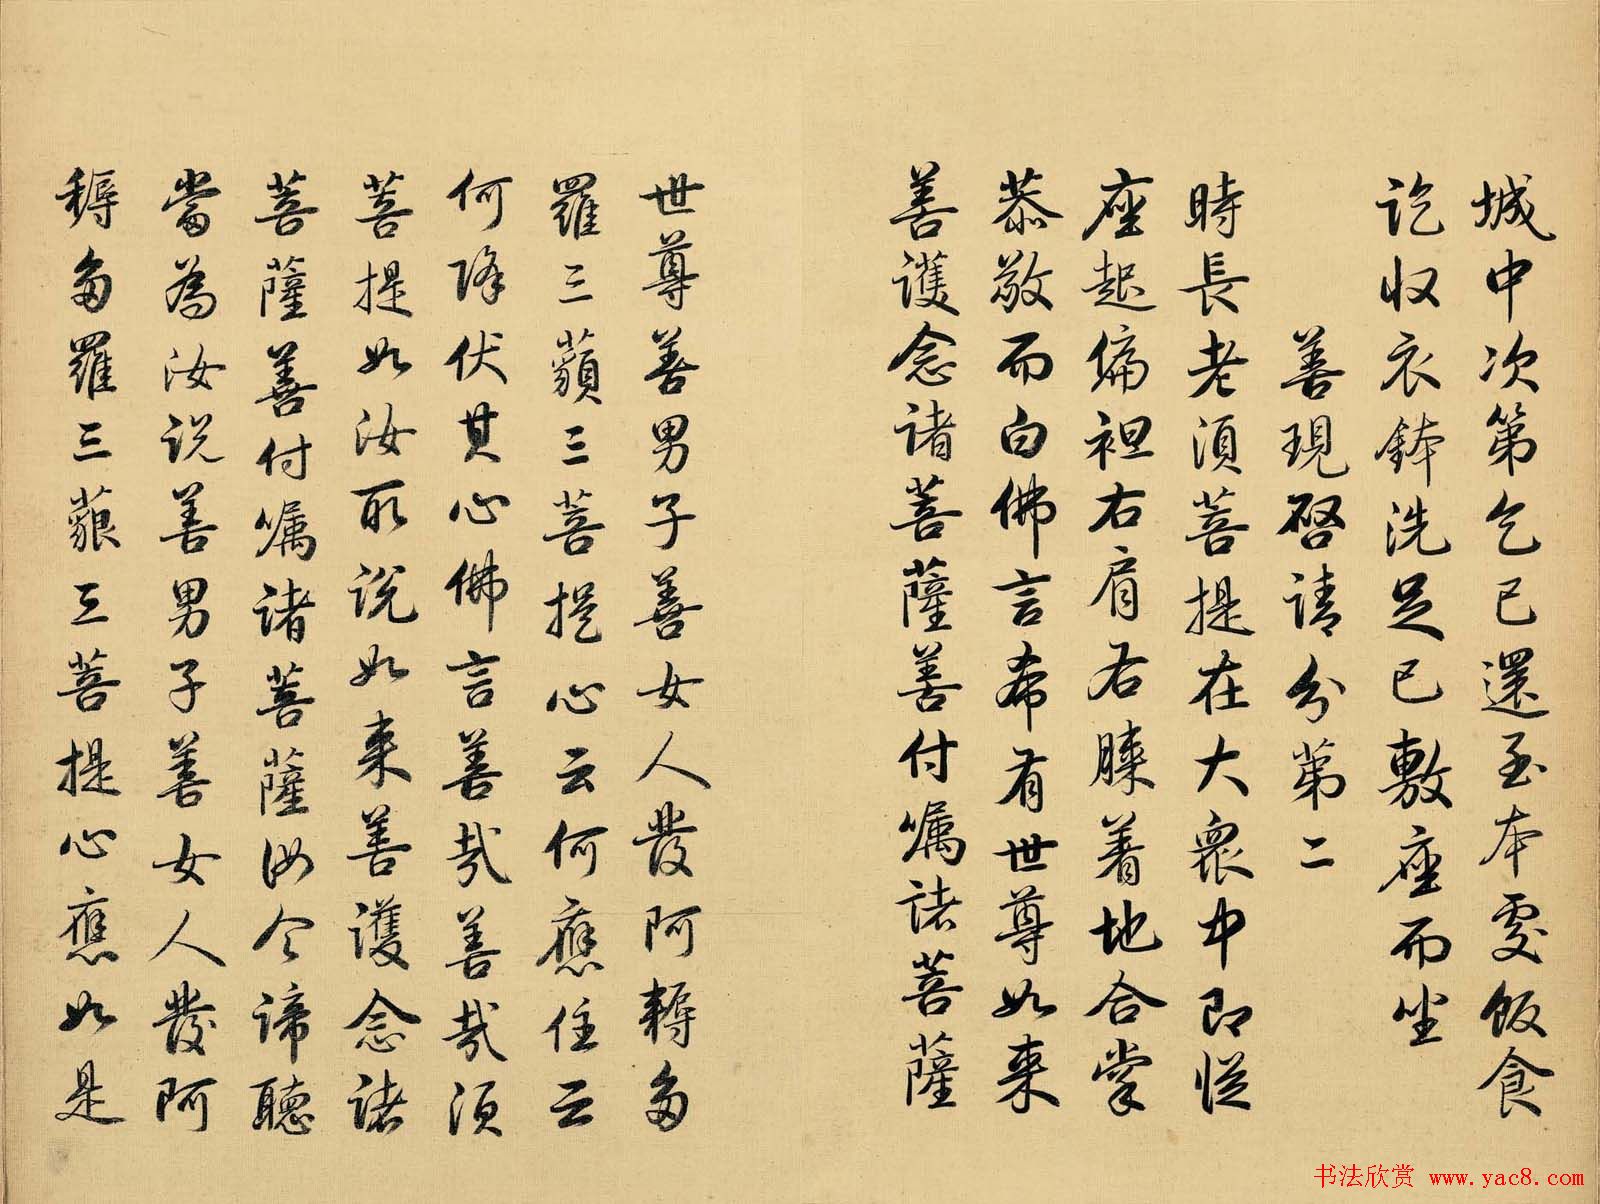 城中次第乞已還至本處飯食
訖收衣鉢洗足已敷座而坐
善現啓請分第二
時長老須菩提在大衆中即從
座起偏袒右肩右膝着地合掌
恭敬而白佛言希有世尊如来
善護念諸菩薩善付嘱諸菩薩
世尊善男子善女人發阿耨多
羅三藐三菩提心云何應住云
何降伏其心佛言善哉善哉須
菩提如汝所説如来善護念諸
菩薩善付嘱諸菩薩汝今諦聽
當為汝説善男子善女人發阿
耨多羅三藐三菩提心應如是
书法欣赏 www.yac8.com